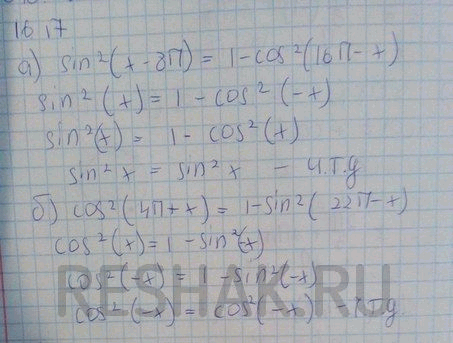 16 17
а) sin²(x-8π) = 1-cos²(16π-x)
sin²(x) = 1-cos²(-x)
sin²(x) = 1-cos²(x)
sin²x = sin²x - ч.т.д
б) cos²(4π+x) = 1-sin²(22π-x)
cos²(x) = 1-sin²(-x)
cos²(-x) = 1-sin²(-x)
cos²(-x) = cos²(-x) - ч.т.д.
RESHAK.RU